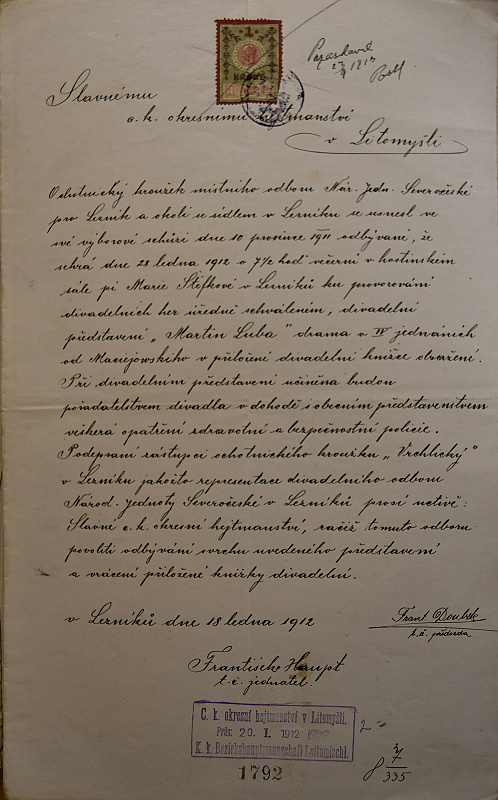 1
KRONE
Slavnému
c. k. okresnímu hejtmanství
v Litomyšli
Ochotnický kroužek místního odboru Nár. Jedn. Severočeské
pro Lezník a okolí se sídlem v Lezníku se usnesl ve
své výborové schůzi dne 10 prosince 1911 odbývané, že
sehrá dne 28 ledna 1912 o 7½ hod večerní v hostinském
sále pí Marie Štefkové v Lezníků ku provozování
divadelních her úředně schváleném, divadelní
představení „Martin Luba" drama o IV jednáních
od Maciejowského v přiložené divadelní knížce obsažení.
Při divadelním představení učiněna budou
pořadatelstvem divadla v dohodě s obecním představenstvem
veškerá opatření zdravotní a bezpečnostní policie.
Podepsaní zástupci ochotnického kroužku „Vrchlický"
v Lezníku jakožto representace divadelního odboru
Národ. Jednoty Severočeské v Lezníků prosí uctivě:
Slavné c. k. okresní hejtmanství, račiž tomuto odboru
povoliti odbývání svrchu uvedeného představení
a vrácení přiložené knížky divadelní.
v Lezníků dne 18 ledna 1912
Frant. Doubek
t. č. předseda
František Haupt
t. č. jednatel.
C. k. okresní hejtmanství v Litomyšli.
Präs: 20. I. 1912
K. k. Bezirkshauptmannschaft Leitomischl.
1792
335